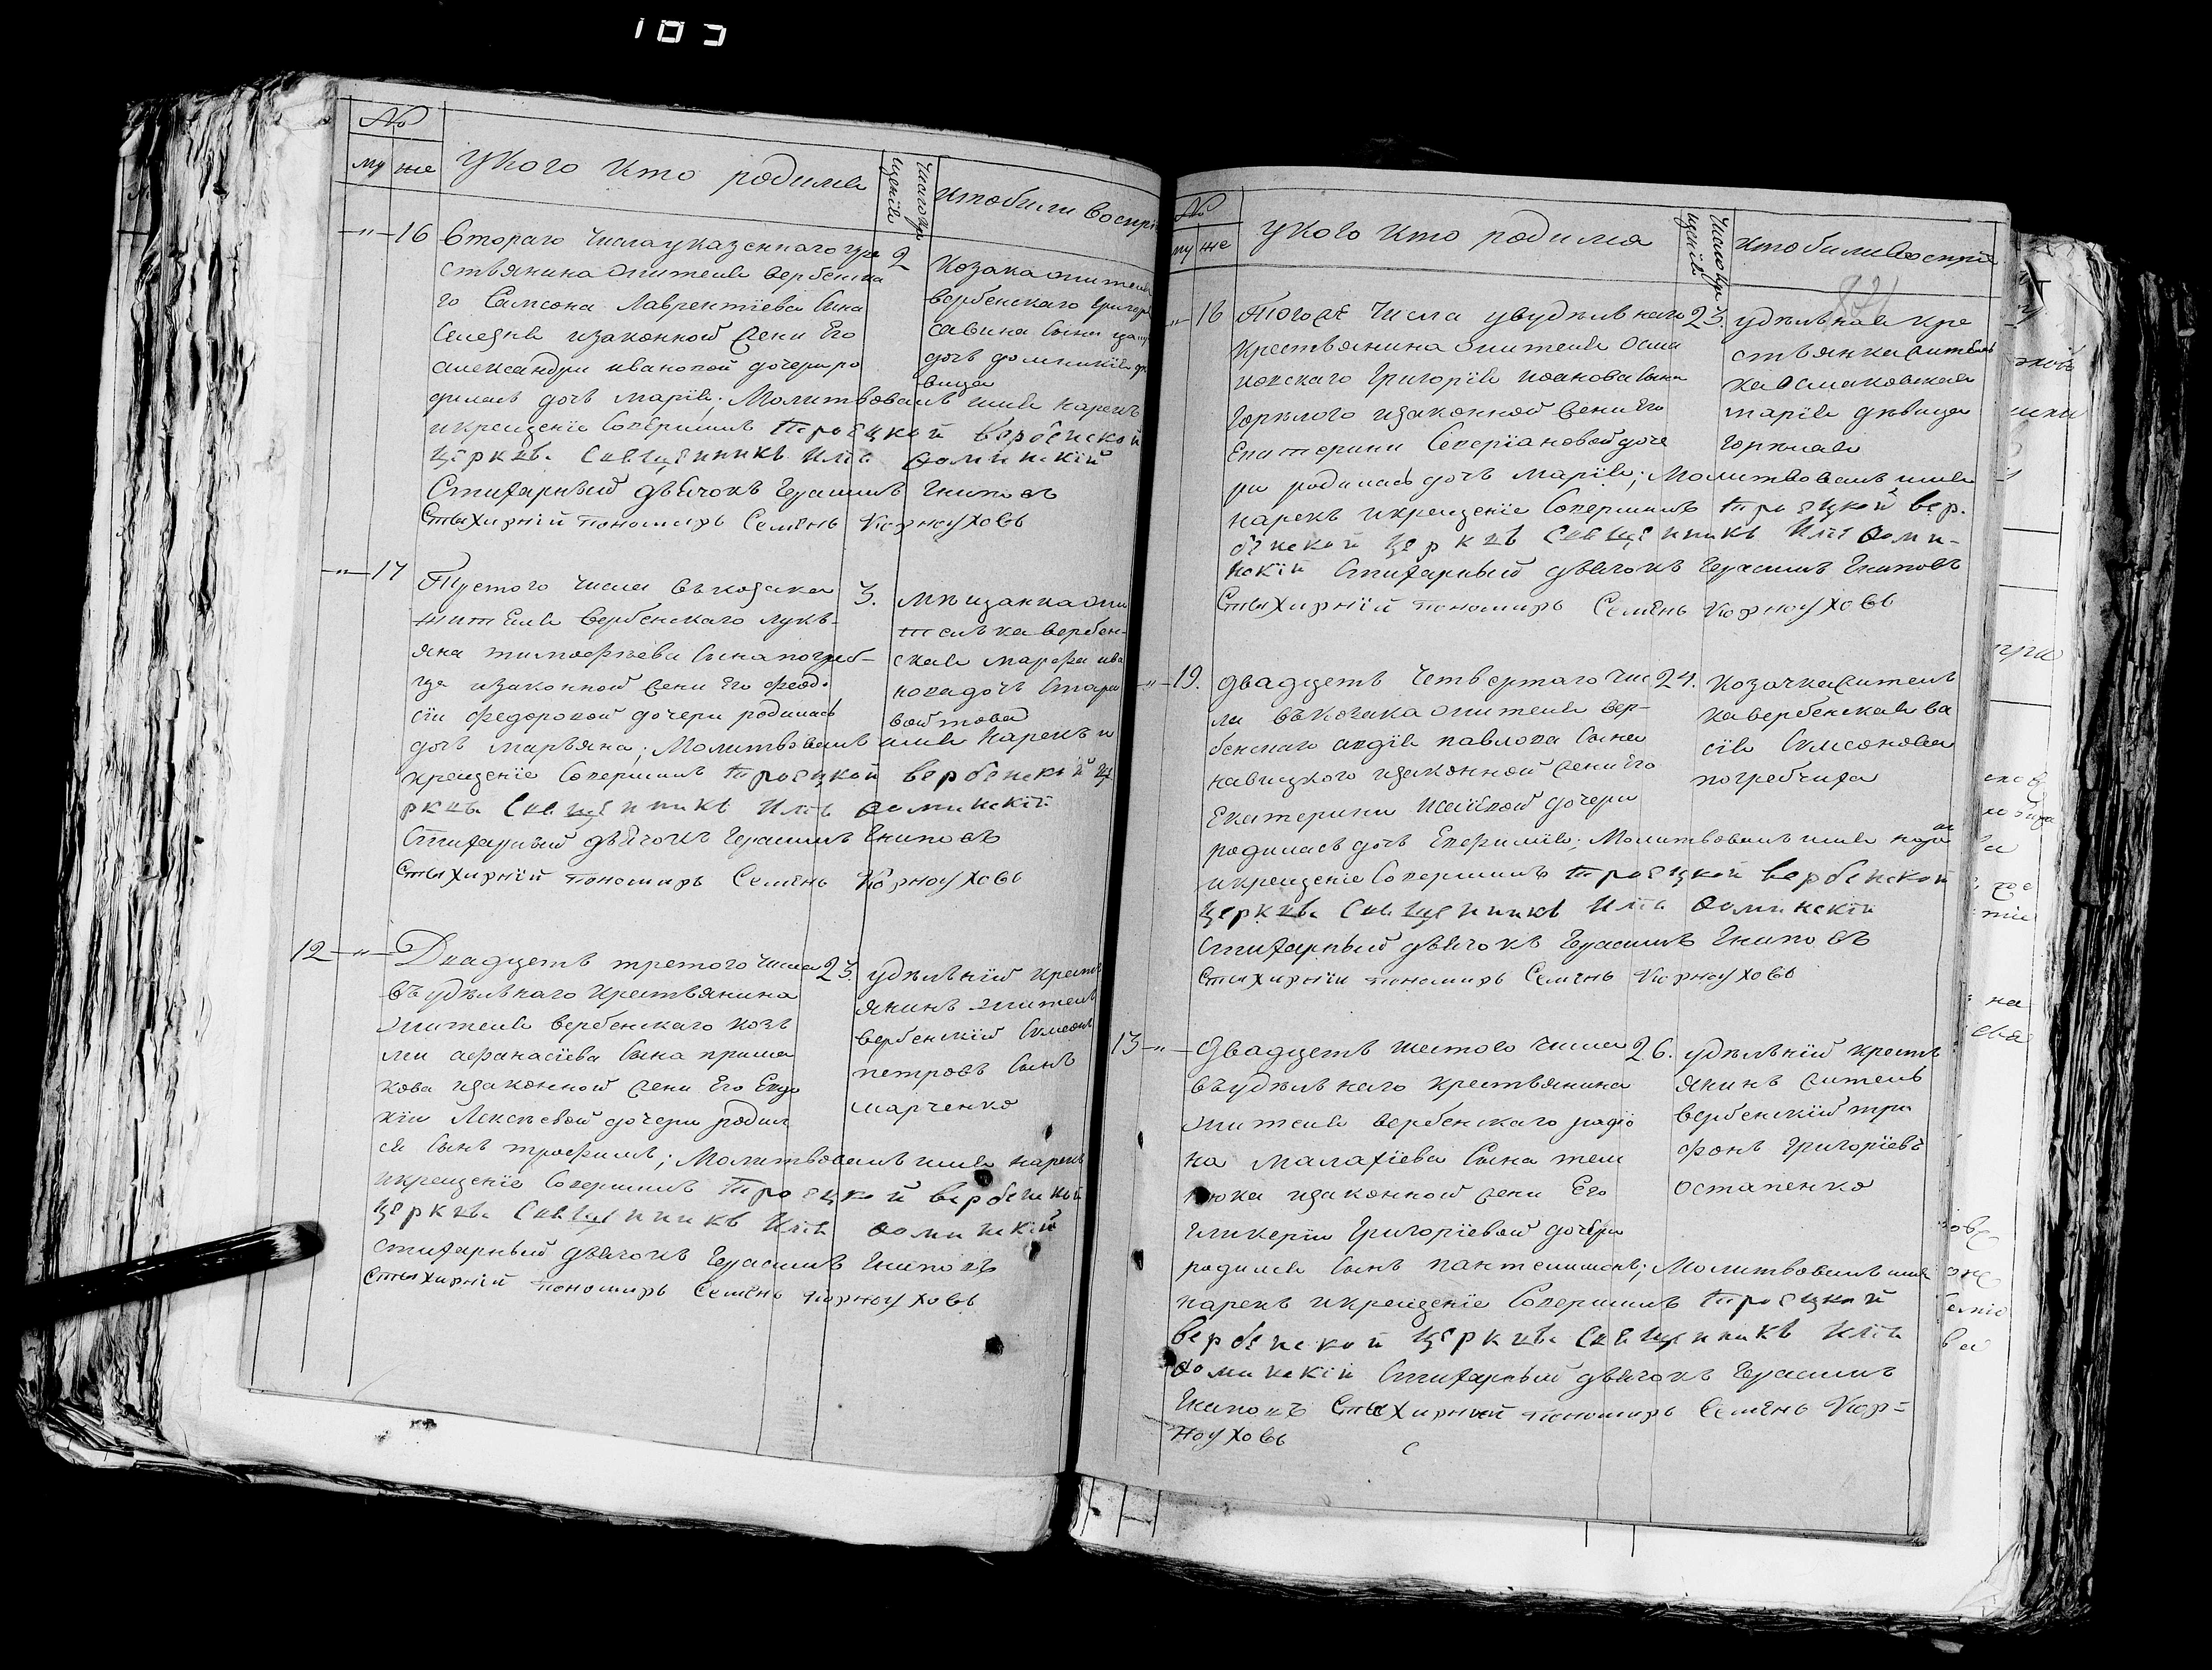 103
№
му же
У кого кто родился
Число кре
щенiя
Кто были воспрi
16 Втораго числа у казеннаго кре
стьянина жителя вербенска
го Самсона Лаврентiева сына
из законной жени его
александри ивановой дочери ро
дилась дочь марiя; Молитвовалъ имя нарекъ
и крещенiе совершилъ Троецкой вербенской
церкви Священникъ Илiя Фоминскiй
Стихарный дьячокъ Герасимъ Гниповъ
Стыхирнiй пономарь Семенъ Корноуховъ
2
Козака жителя
вербенскаго григор
савина сына
дочь домникiя дѣ
вица
17
Тустого числа въ козака
жителя вербенскаго лукь-
яна тимофѣева сына погреб-
из законной жени его феодо
сiи федоровой дочери родилась
дочь марьяна; Молитвовалъ имя нарекъ и
крещенiе совершилъ Троецкой вербенской це
ркви Священникъ Илiя Фоминскiй
Стихарный дьячокъ Герасимъ Гниповъ
Стыхирнiй пономарь Семенъ Корноуховъ
3.
Мѣщанка жи
телька вербен-
ская марфа ива
нова дочь
12 Двадцеть третого числа
въ удѣльнаго крестьянина
жителя вербенскаго козь
ми афанасiева сына
кова из законной жени его Евдо
кiи Алексѣевой дочери родил
ся сынъ трофимъ; Молитвовалъ имя нарекъ
и крещенiе совершилъ Троецкой вербенской
церкви Священникъ Илiя Фоминскiй
Стихарный дьячокъ Герасимъ Гниповъ
Стыхирнiй пономарь Семенъ Корноуховъ
23.
удѣльнiй кресть
янинъ житель
вербенскiй Самсонъ
петровъ сынъ
марченко
№
му же
У кого кто родился
Число кре
щенiя
Кто были воспрiе
18 Того же числа у удѣльнаго
крестьянина жителя осма
ковскаго Григорiя иоанова сына
Горѣлого из законной жени его
Екатерини Северiановой доче
ри родилась дочь марiя; Молитвовалъ имя
нарекъ и крещенiе совершилъ Троецкой вер-
бенской церкви Священникъ Илiя Фоми-
нскiй Стихарный дьячокъ Герасимъ Гниповъ
Стыхирнiй пономарь Семенъ Корноуховъ
23.
удѣльная кре
стьянка житель
ка осмаковская
марiя дѣвица
горилая
19. Двадцеть четвертаго чис
ла въ козака жителя вер-
бенскаго авдiя павлова сына
навицкого из законной жени его
Екатерини дочери
родилась дочь Евфимiя; Молитвовалъ имя наре
и крещенiе совершилъ Троецкой вербенской
церкви Священникъ Илiя Фоминскiй
Стихарный дьячокъ Герасимъ Гниповъ
Стыхирнiй пономарь Семенъ Корноуховъ
24.
Козачка житель
ка вербенская ва
сiя Самсонова
погребчиха
13 Двадцеть шестого числа
въ удѣльнаго крестьянина
жителя вербенскаго радiо
на Малахiева сына тем
нюка из законной жени его
гликерiи Григорiевой дочери
родился сынъ пантелимонъ; Молитвовалъ имя
нарекъ и крещенiе совершилъ Троецкой
вербенской церкви Священникъ Илiя
Фоминскiй Стихарный дьячокъ Герасимъ
Гниповъ Стыхирнiй пономарь Семенъ Кор=
ноуховъ
26.
удѣльнiй кресть
янинъ житель
вербенскiй три
фонъ Григорiевъ
остапенко